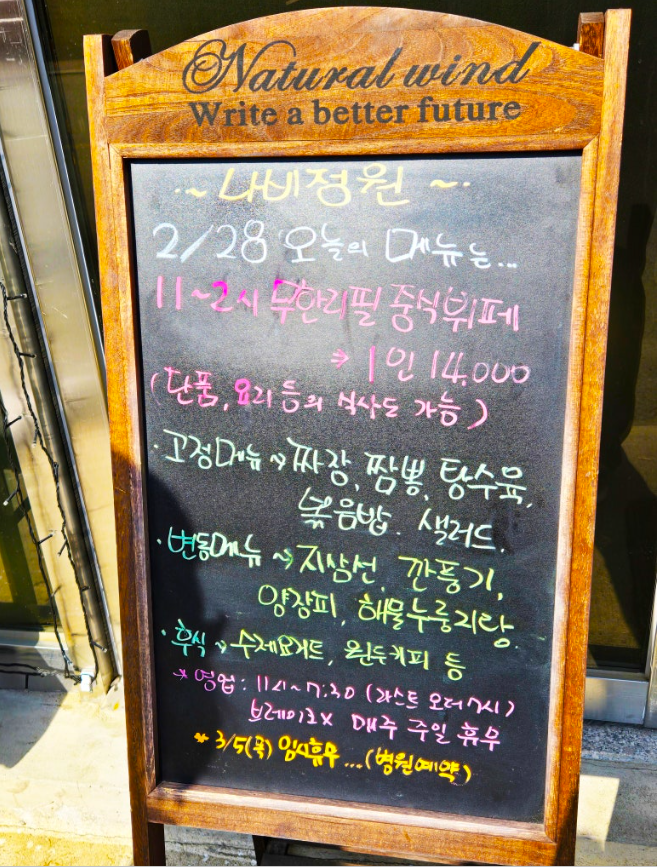 Natural wind
Write a better future
~ 나비정원 ~
2/28 오늘의 메뉴는...
11~2시 무한리필 중식뷔페
→ 1인 14,000
(단품, 요리 등의 식사도 가능)
· 고정메뉴 → 짜장, 짬뽕, 탕수육,
볶음밥. 샐러드.
· 변동메뉴 → 지삼선, 깐풍기,
양장피, 해물누룽지탕
· 후식 → 수제요거트, 원두커피 등
* 영업 : 11시~7:30 (라스트 오더 7시)
브레이크X 매주 주일 휴무
* 3/5(목) 임시휴무...(병원예약)